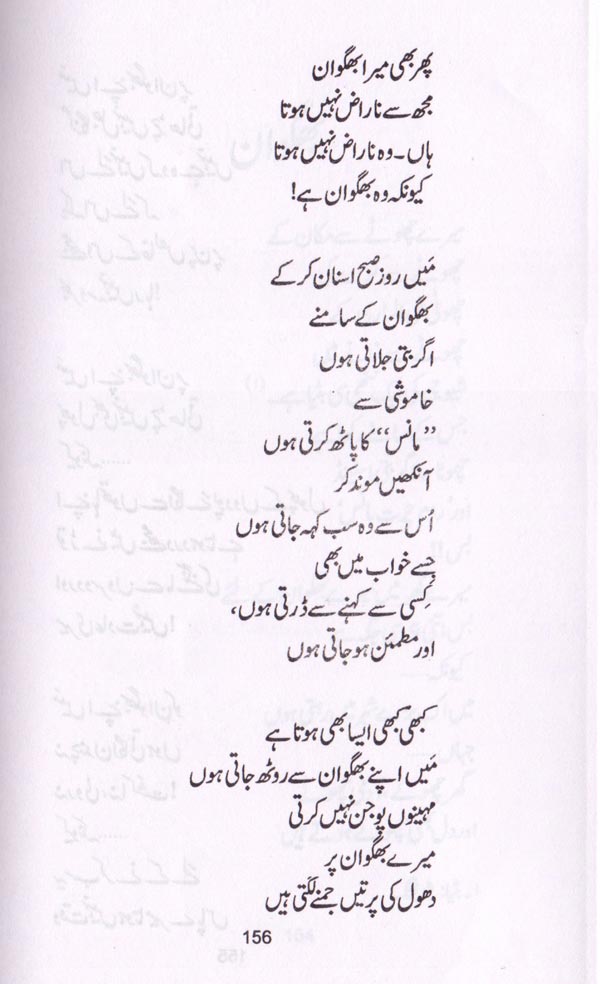 پھر بھی میرا بھگوان
مجھ سے ناراض نہیں ہوتا
ہاں۔ وہ ناراض نہیں ہوتا
کیونکہ وہ بھگوان ہے!
مَیں روز صبح اسنان کر کے
بھگوان کے سامنے
اگربتی جلاتی ہوں
خاموشی سے
”مانس“ کا پاٹھ کرتی ہوں
آنکھیں موند کر
اُس سے وہ سب کہہ جاتی ہوں
جسے خواب میں بھی
کِسی سے کہنے سے ڈرتی ہوں،
اور مطمئن ہو جاتی ہوں
کبھی کبھی ایسا بھی ہوتا ہے
مَیں اپنے بھگوان سے روٹھ جاتی ہوں
مہینوں پوجن نہیں کرتی
میرے بھگوان پر
دھول کی پرتیں جمنے لگتی ہیں
156